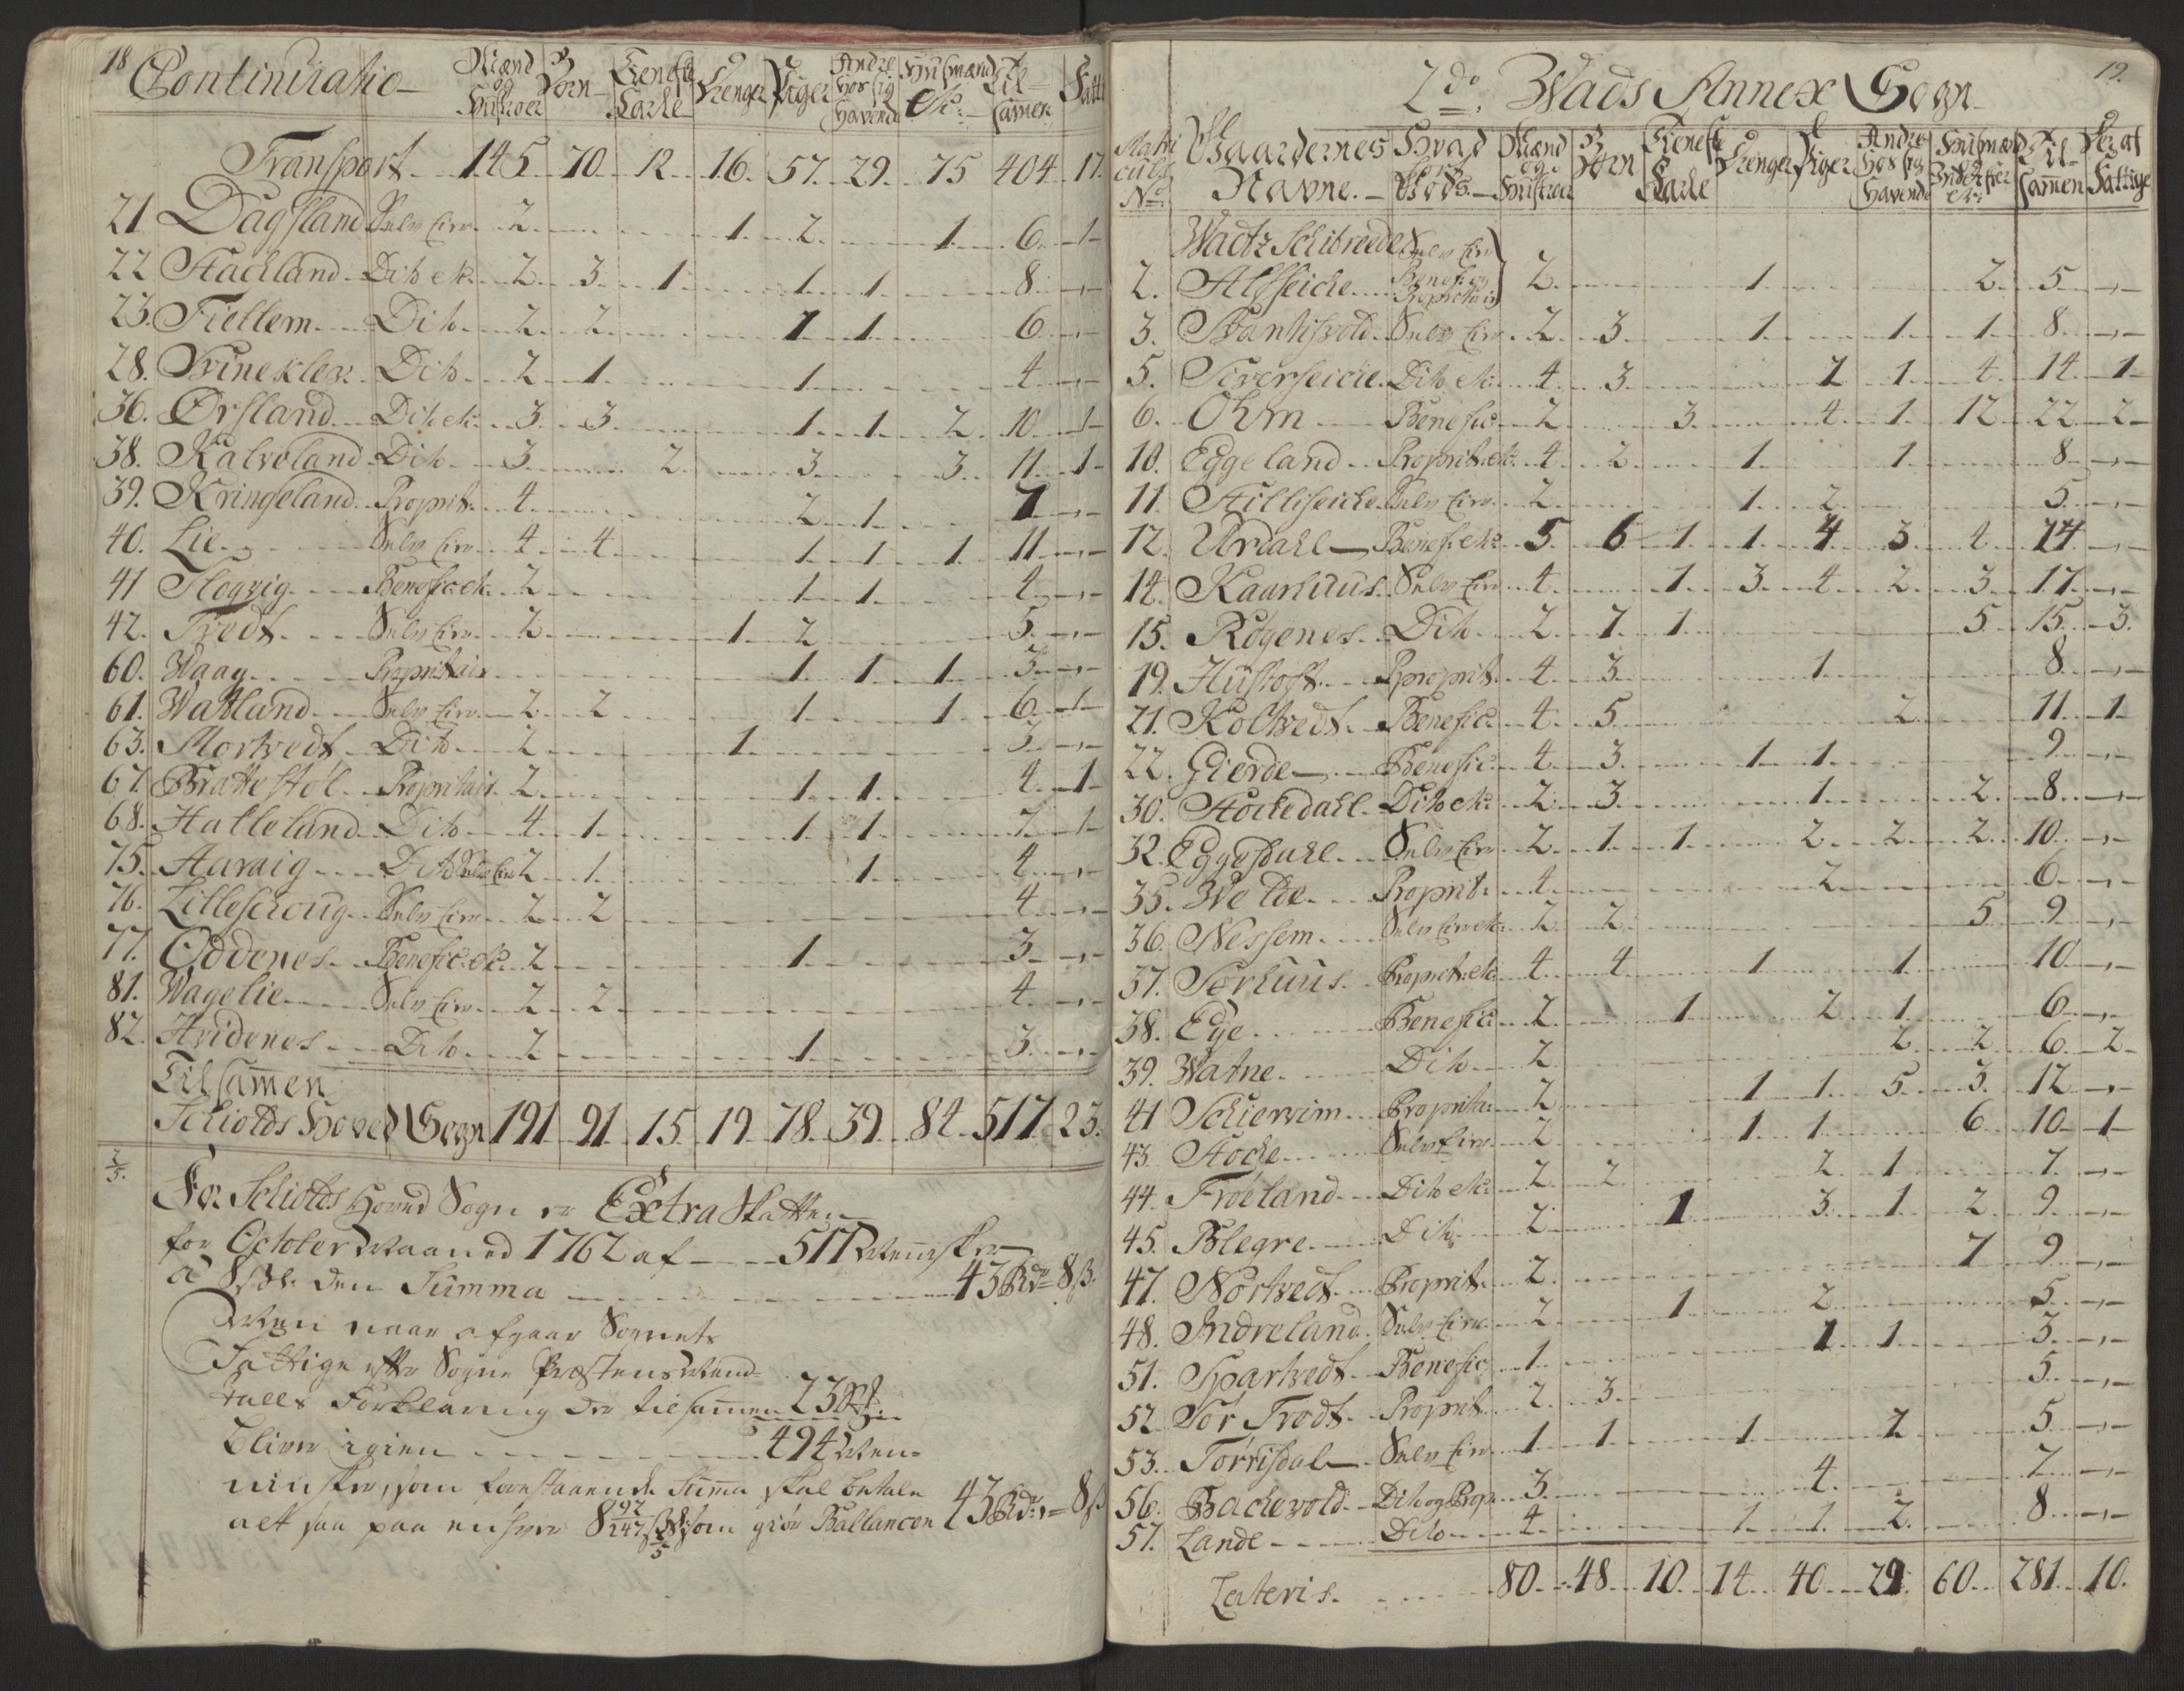 18 Continuatio Mænd og Hustroer Børn Tieneste Karle Drenger Piger Andre hos sig havende Husmænd etc: Tilsamen Fatti
Transport 145 70 12 16 57 29 75 404 17
21 Dagsland Selv Eier 2 1 2 1 6 1
22 Stachland Dito etc 2 3 1 1 1 8 -
23 Fiellem Dito 2 2 1 1 6 -
28 Svinekler Dito 2 1 1 4 -
36 Ørsland Dito etc 3 3 1 1 2 10 1
38 Kalveland Dito 3 2 3 3 11 1
39 Kringeland Proprit: 4 2 1 7 -
40 Lie Selv Eier 4 4 1 1 1 11 -
41 Slogvig Benefic: etc 2 1 1 4 -
42 Tvedt Selv Eier 2 1 2 5 -
60 Waag Propritair 1 1 1 3 -
61 Watland Selv Eier 2 2 1 1 6 1
63 Mortvedt Dito 2 1 3 -
67 Brattestøl Propritair 2 1 1 4 1
68 Halleland Dito 4 1 1 1 7 1
75 Aaraig Dito Selv Eier 2 1 1 4 -
76 Lilleschoug Selv Eier 2 2 4 -
77 Oddenes Benefic: etc 2 1 3 -
81 Wagelie Selv Eier 2 2 4 -
82 Hvidenes Dito 2 1 3 -
Tilsamen
Schiolds Hoved Sogn 191 91 15 19 78 39 84 517 23
2/5. For Schiolds Hoved Sogn er Extra Skatten
for October Maaned 1762 af 517 Mennisker
a 8 sk: den Summa 43 Rdr 8 s.
Men naar afgaar Sognets
Fattige efter Sogne Præstens Mand-
talls Forklaring der tilsamen 23
Bliver igien 494 Men-
nisker, som forestaaende Summa skal betale
alt saa paa enhver 8 92/247 s som giør Ballancen 43 Rdr 8 s
19.
2do. Wads Annex Sogn
Matriculs No: Gaardernes Navne Hvad Gods Mænd og Hustroer Børn Tieneste Karle Drenger Piger Andre hos sig havende Husmænd Inderster etc: Tilsamen Deraf Fattige
Wadtz Schibreede
2. Alfseiche Selv Eier Benefic og Propritair 2 1 2 5 -
3. Svantisvold Selv Eier 2 3 1 1 1 8 -
5. Siverseiche Dito etc 4 3 1 1 4 14 1
6. Ohm Benefic: 2 3 4 1 12 22 2
10. Eggeland Proprit: etc 4 2 1 1 8 -
11. Stilliseiche Selv Eier 2 1 2 5 -
12. Urdahl Benef: etc 5 6 1 1 4 3 4 24 -
14. Kaarhuus Selv Eier 4 1 3 4 2 3 17 -
15. Røgenes Dito 2 7 1 5 15 3
19. Hustoft Proprit: 4 3 1 8 -
21. Koltvedt Benefic: 4 5 2 11 1
22. Gierde Benefic: 4 3 1 1 9 -
30. Stochedahl Dito etc 2 3 1 2 8 -
32. Eggesdahl Selv Eier 2 1 1 2 2 2 10 -
35. Welde Proprit: 4 2 6 -
36. Nessem Selv Eier etc 2 2 5 9 -
37. Sørhuus Proprit: etc 4 4 1 1 10 -
38. Ege Benefic: 2 1 2 1 6 -
39. Watne Dito 2 2 2 6 2
41 Schiervim Proprita: 2 1 1 5 3 12 -
43. Stoche Selv Eier 2 1 1 6 10 1
44. Frøeland Dito etc 2 2 2 1 7 -
45. Blegre Dito 2 1 3 1 2 9 -
47. Nortvedt Proprit: 2 7 9 -
48. Indreland Selv Eier 2 1 2 5 -
51. Spartvedt Benefic 1 1 1 3 -
52 Sør Trodt Proprit: 2 3 5 -
53. Torrisdal Selv Eier 1 1 1 2 5 -
56. Bachevold Dito og Prop: 3 4 7 -
57. Lande Dito 4 1 1 2 8 -
Lateris. 80 48 10 14 40 29 60 281 10.